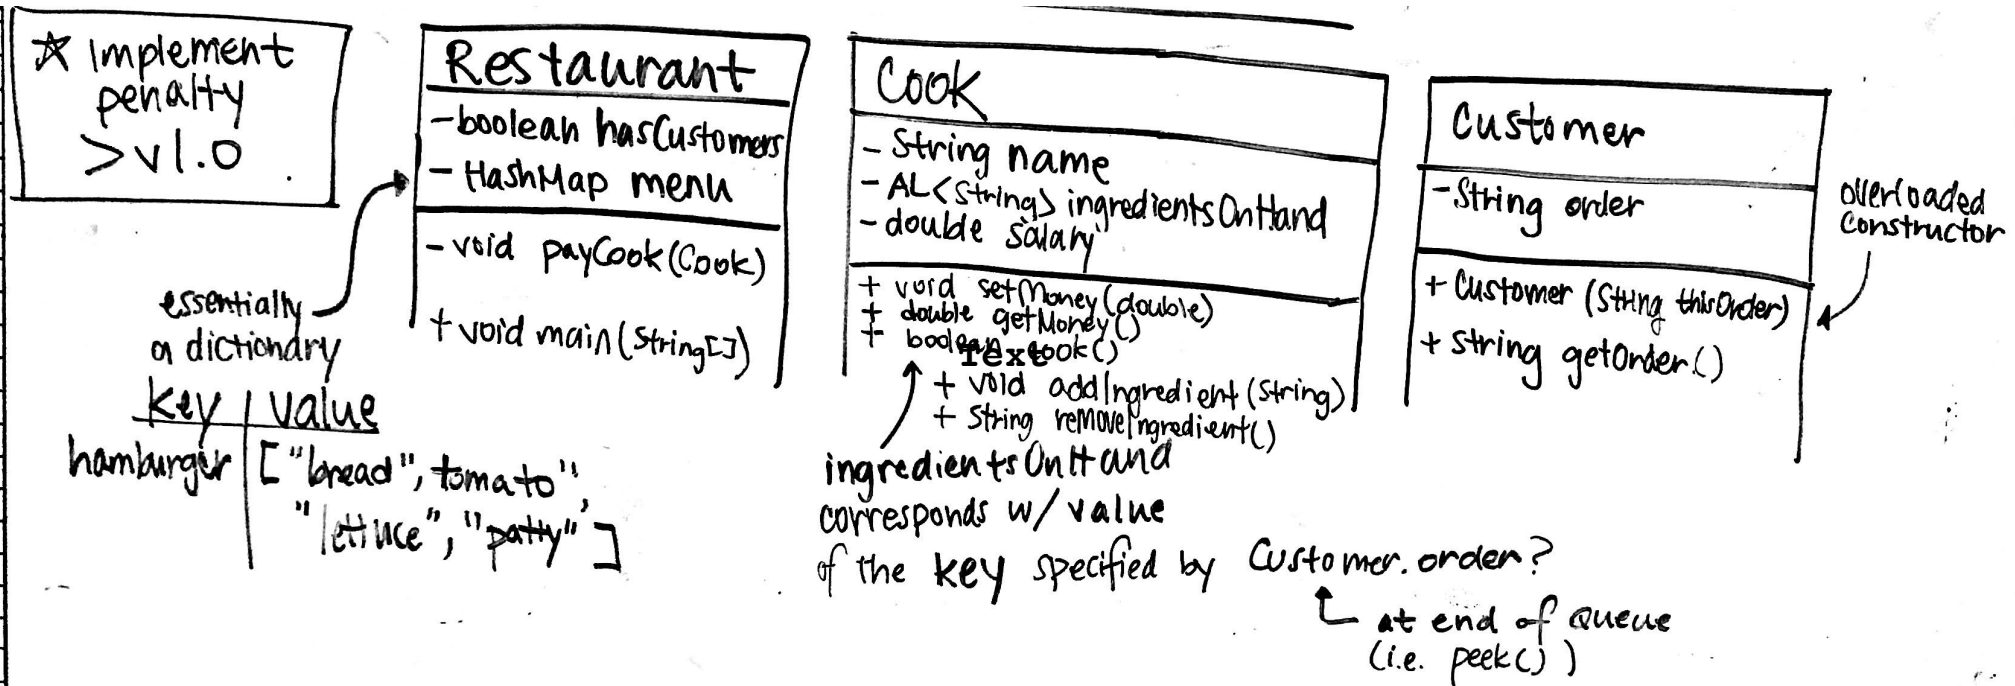 ☆ Implement
penalty
>v1.0
Restaurant
-boolean hasCustomers
- HashMap menu
- void payCook(Cook)
+ void main(String[])
essentially
a dictionary
key | value
hamburger | ["bread", tomato",
"lettuce", "patty"]
Cook
- String name
- AL<String> ingredientsOnHand
- double salary
+ void setMoney(double)
+ double getMoney()
+ boolean cook()
Text
+ void addIngredient(String)
+ String removeIngredient()
ingredientsOnHand
corresponds w/ value
of the key specified by Customer.order?
at end of queue
(i.e. peek())
Customer
-String order
+ Customer (String thisOrder)
+ String getOrder()
overloaded
constructor